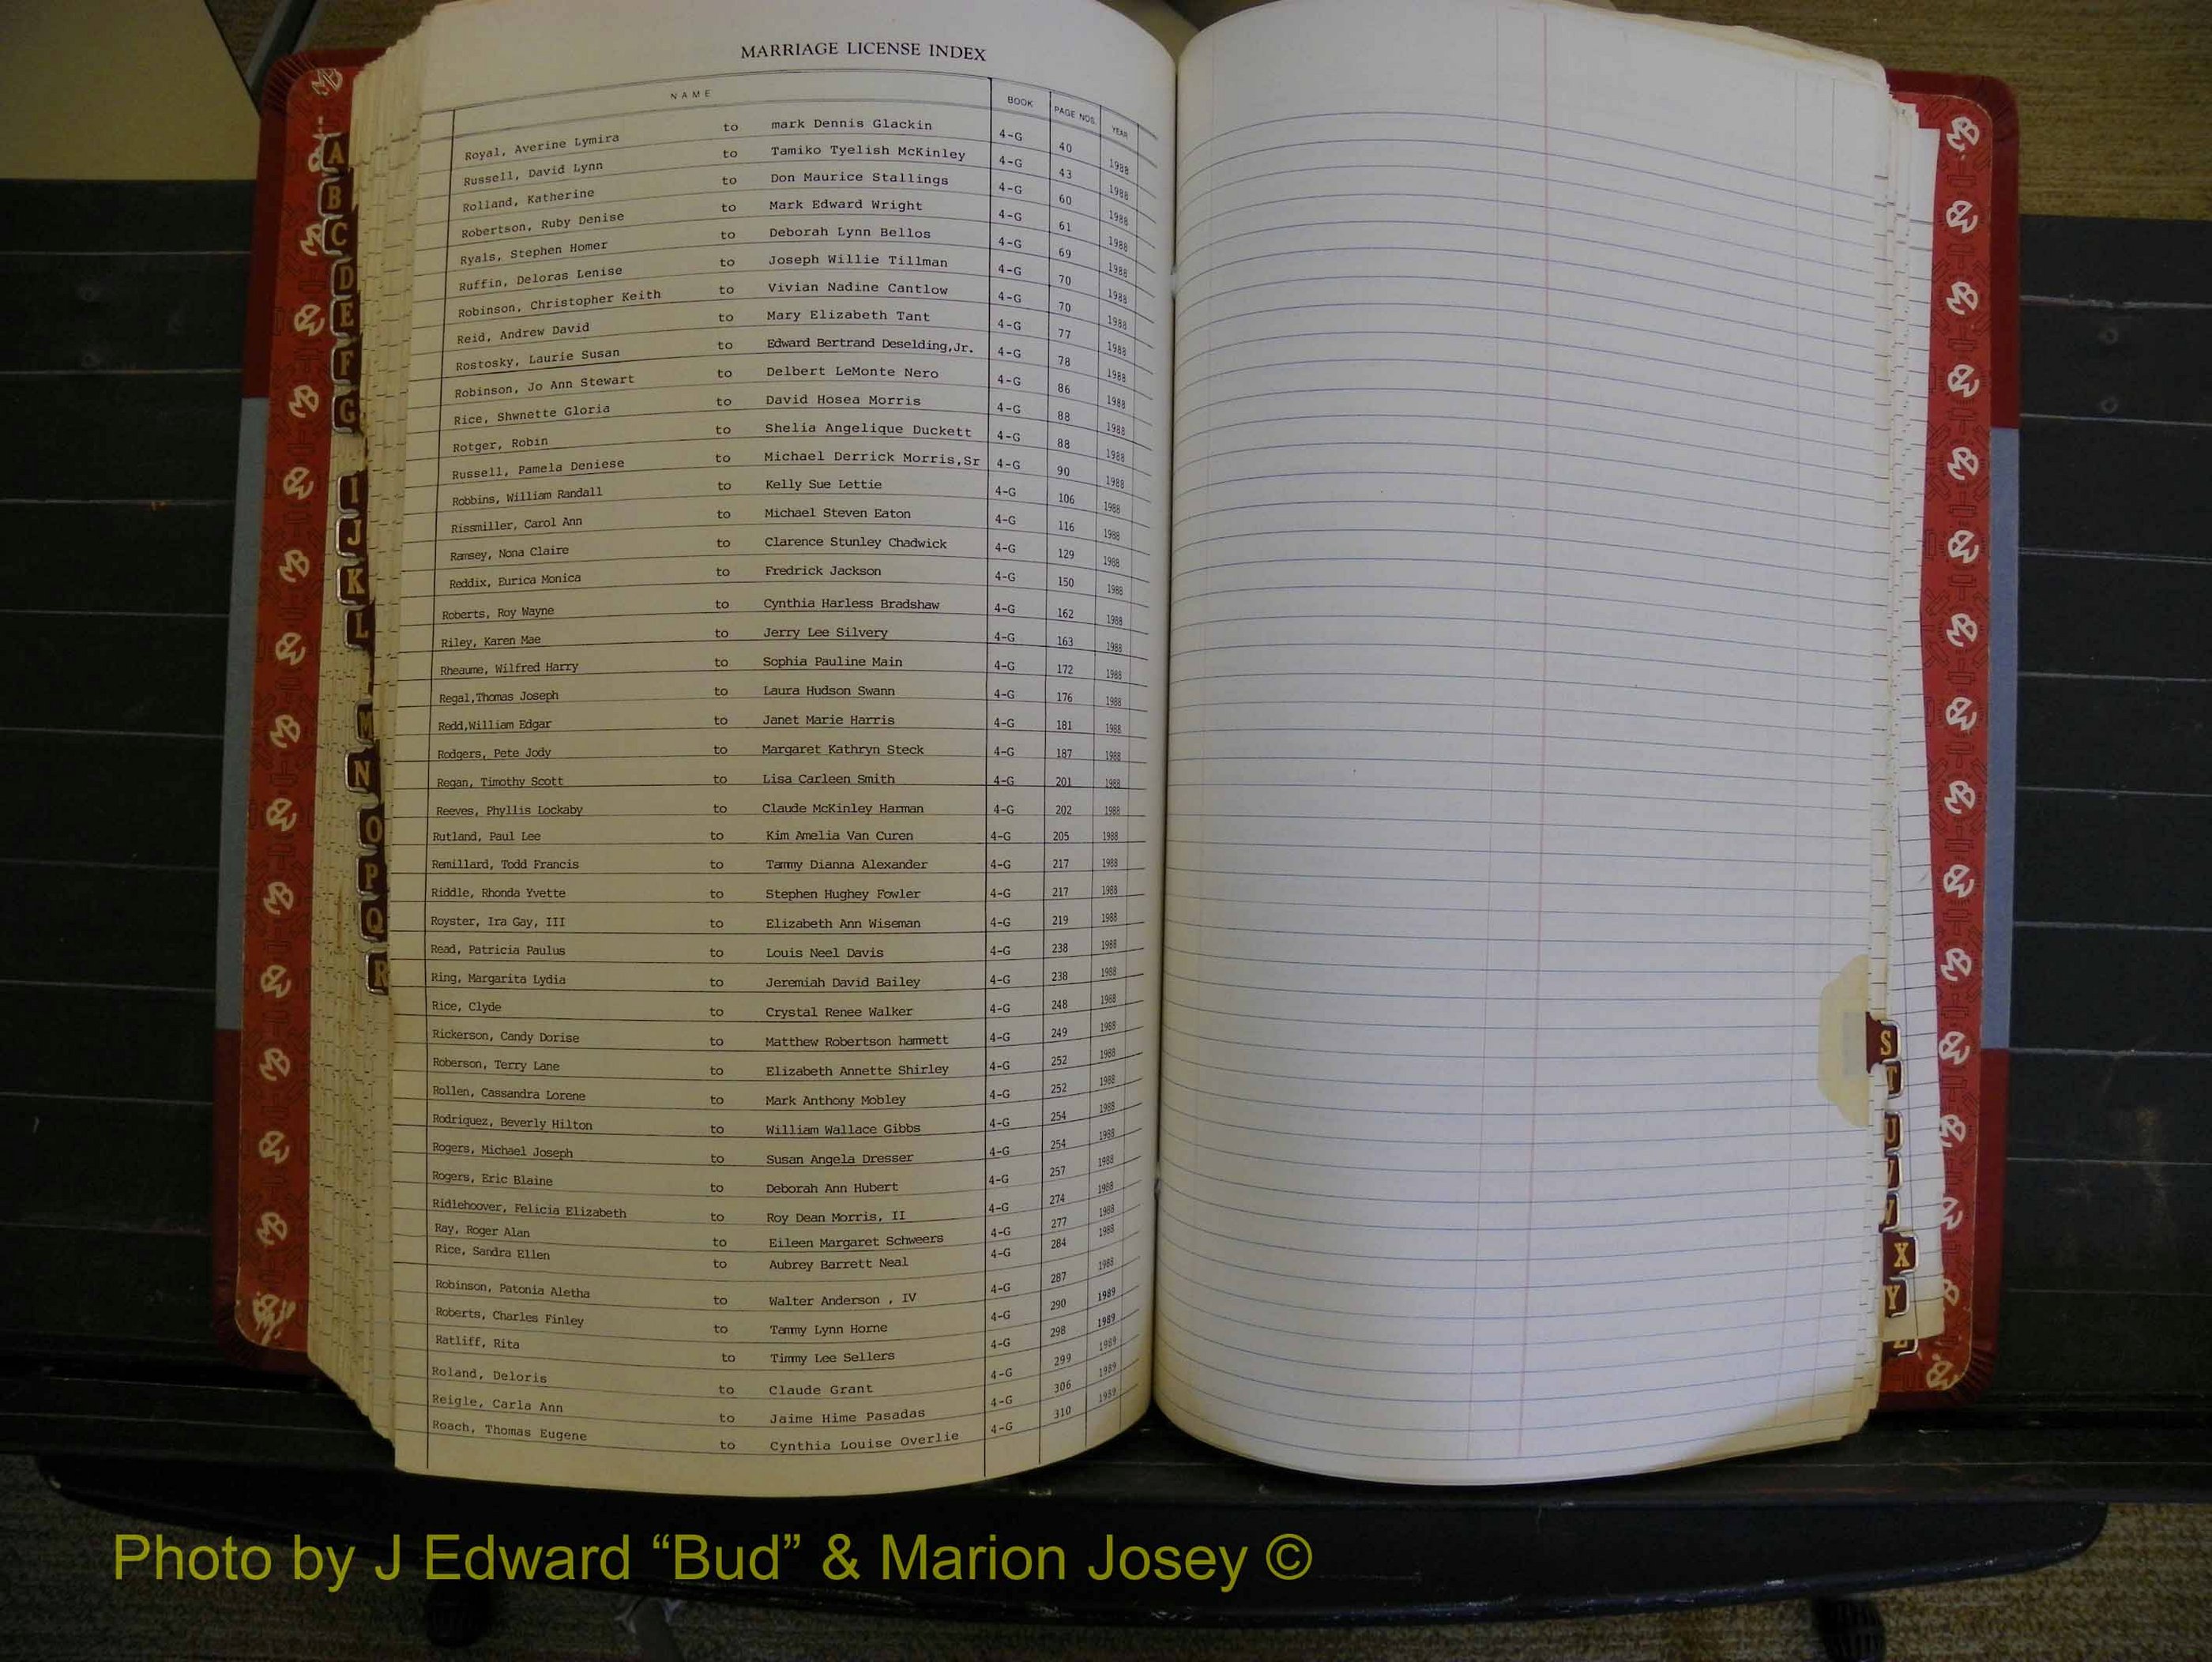 MARRIAGE LICENSE INDEX
NAME BOOK PAGE NOS. YEAR
Royal, Averine Lymira to mark Dennis Glackin 4-G 40 1988
Russell, David Lynn to Tamiko Tyelish McKinley 4-G 43 1988
Rolland, Katherine to Don Maurice Stallings 4-G 60 1988
Robertson, Ruby Denise to Mark Edward Wright 4-G 61 1988
Ryals, Stephen Homer to Deborah Lynn Bellos 4-G 69 1988
Ruffin, Deloras Lenise to Joseph Willie Tillman 4-G 70 1988
Robinson, Christopher Keith to Vivian Nadine Cantlow 4-G 70 1988
Reid, Andrew David to Mary Elizabeth Tant 4-G 77 1988
Rostosky, Laurie Susan to Edward Bertrand Deselding,Jr. 4-G 78 1988
Robinson, Jo Ann Stewart to Delbert LeMonte Nero 4-G 86 1988
Rice, Shwnette Gloria to David Hosea Morris 4-G 88 1988
Rotger, Robin to Shelia Angelique Duckett 4-G 88 1988
Russell, Pamela Deniese to Michael Derrick Morris,Sr 4-G 90 1988
Robbins, William Randall to Kelly Sue Lettie 4-G 106 1988
Rissmiller, Carol Ann to Michael Steven Eaton 4-G 116 1988
Ramsey, Nona Claire to Clarence Stunley Chadwick 4-G 129 1988
Reddix, Eurica Monica to Fredrick Jackson 4-G 150 1988
Roberts, Roy Wayne to Cynthia Harless Bradshaw 4-G 162 1988
Riley, Karen Mae to Jerry Lee Silvery 4-G 163 1988
Rheaume, Wilfred Harry to Sophia Pauline Main 4-G 172 1988
Regal,Thomas Joseph to Laura Hudson Swann 4-G 176 1988
Redd,William Edgar to Janet Marie Harris 4-G 181 1988
Rodgers, Pete Jody to Margaret Kathryn Steck 4-G 187 1988
Regan, Timothy Scott to Lisa Carleen Smith 4-G 201 1988
Reeves, Phyllis Lockaby to Claude McKinley Harman 4-G 202 1988
Rutland, Paul Lee to Kim Amelia Van Curen 4-G 205 1988
Remillard, Todd Francis to Tammy Dianna Alexander 4-G 217 1988
Riddle, Rhonda Yvette to Stephen Hughey Fowler 4-G 217 1988
Royster, Ira Gay, III to Elizabeth Ann Wiseman 4-G 219 1988
Read, Patricia Paulus to Louis Neel Davis 4-G 238 1988
Ring, Margarita Lydia to Jeremiah David Bailey 4-G 238 1988
Rice, Clyde to Crystal Renee Walker 4-G 248 1988
Rickerson, Candy Dorise to Matthew Robertson hammett 4-G 249 1988
Roberson, Terry Lane to Elizabeth Annette Shirley 4-G 252 1988
Rollen, Cassandra Lorene to Mark Anthony Mobley 4-G 252 1988
Rodriquez, Beverly Hilton to William Wallace Gibbs 4-G 254 1988
Rogers, Michael Joseph to Susan Angela Dresser 4-G 254 1988
Rogers, Eric Blaine to Deborah Ann Hubert 4-G 257 1988
Ridlehoover, Felicia Elizabeth to Roy Dean Morris, II 4-G 274 1988
Ray, Roger Alan to Eileen Margaret Schweers 4-G 277 1988
Rice, Sandra Ellen to Aubrey Barrett Neal 4-G 284 1988
Robinson, Patonia Aletha to Walter Anderson , IV 4-G 287 1988
Roberts, Charles Finley to Tammy Lynn Horne 4-G 290 1989
Ratliff, Rita to Timmy Lee Sellers 4-G 298 1989
Roland, Deloris to Claude Grant 4-G 299 1989
Reigle, Carla Ann to Jaime Hime Pasadas 4-G 306 1989
Roach, Thomas Eugene to Cynthia Louise Overlie 4-G 310 1989
A
B
C
D
E
F
G
I
J
K
L
M
N
O
P
Q
R
S
T
U
V
X
Y
Photo by J Edward “Bud” & Marion Josey ©